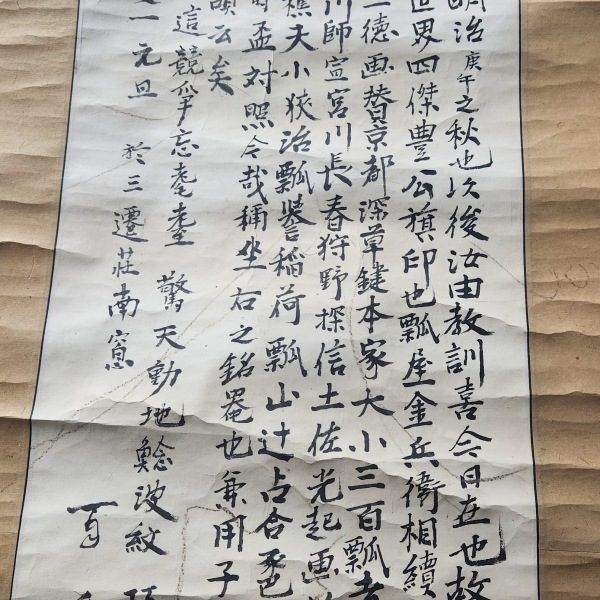 明治庚午之秋也以後汝由教訓喜今日在也故
世界四傑豊公旗印也瓢屋金兵衛相續
一徳画賛京都深草鍵本家大小三百瓢
川師宮川長春狩野探信土佐光起画
樵夫小狭治瓢誉稲荷瓢山辻占合
盃対照今哉称坐右之銘罷也兼用子
頌云矣
這競争忘耄耋
驚天動地鯰波紋
一元旦
於三遷荘南窓